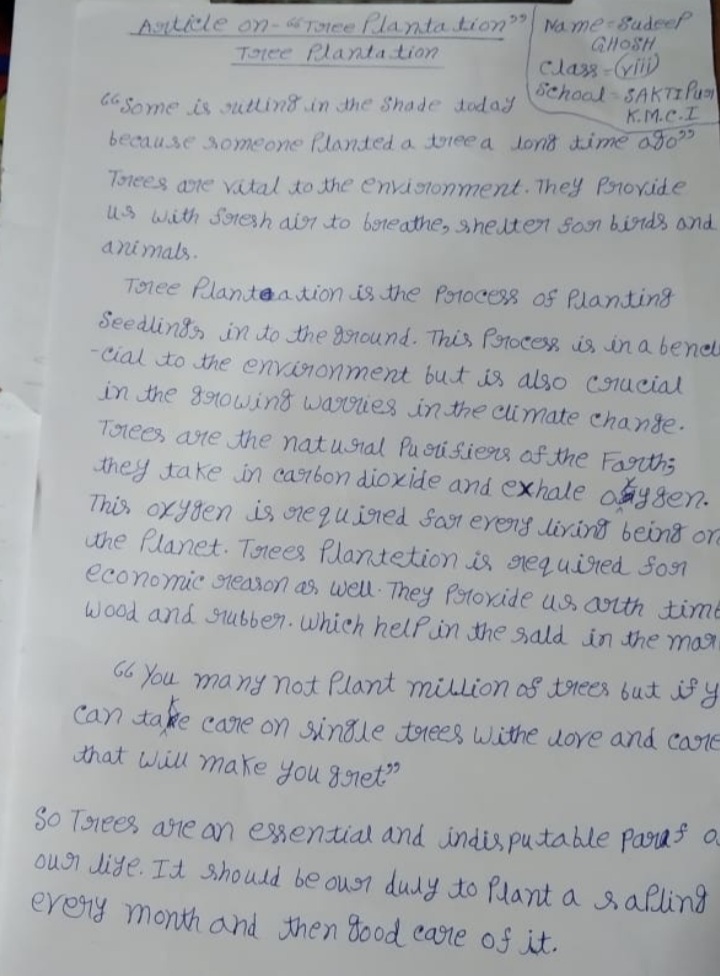 Article on - "Tree Plantation"
Tree Plantation
Name = Sudeep
GHOSH
Class - (viii)
School = SAKTIPur
K.M.C.I
"Some is sutting in the Shade today
because someone Planted a tree a long time ago"
Trees are vital to the environment. They Provide
us with fresh air to breathe, shelter for birds and
animals.
Tree Plantation is the Process of Planting
Seedlings in to the ground. This Process is in a benel
-cial to the environment but is also crucial
in the growing warries in the climate change.
Trees are the natural Purifiers of the Farth;
they take in carbon dioxide and exhale oxygen.
This oxygen is required for every living being on
the Planet. Trees Plantetion is required for
economic reason as well. They Provide us arth timb
Wood and rubber. Which help in the sald in the mar
"You many not Plant million of trees but if y
can take care on single trees withe love and care
that will make you gret"
So Trees are an essential and indisputable Paras o
our life. It should be our duly to Plant a sapling
every month and then good care of it.